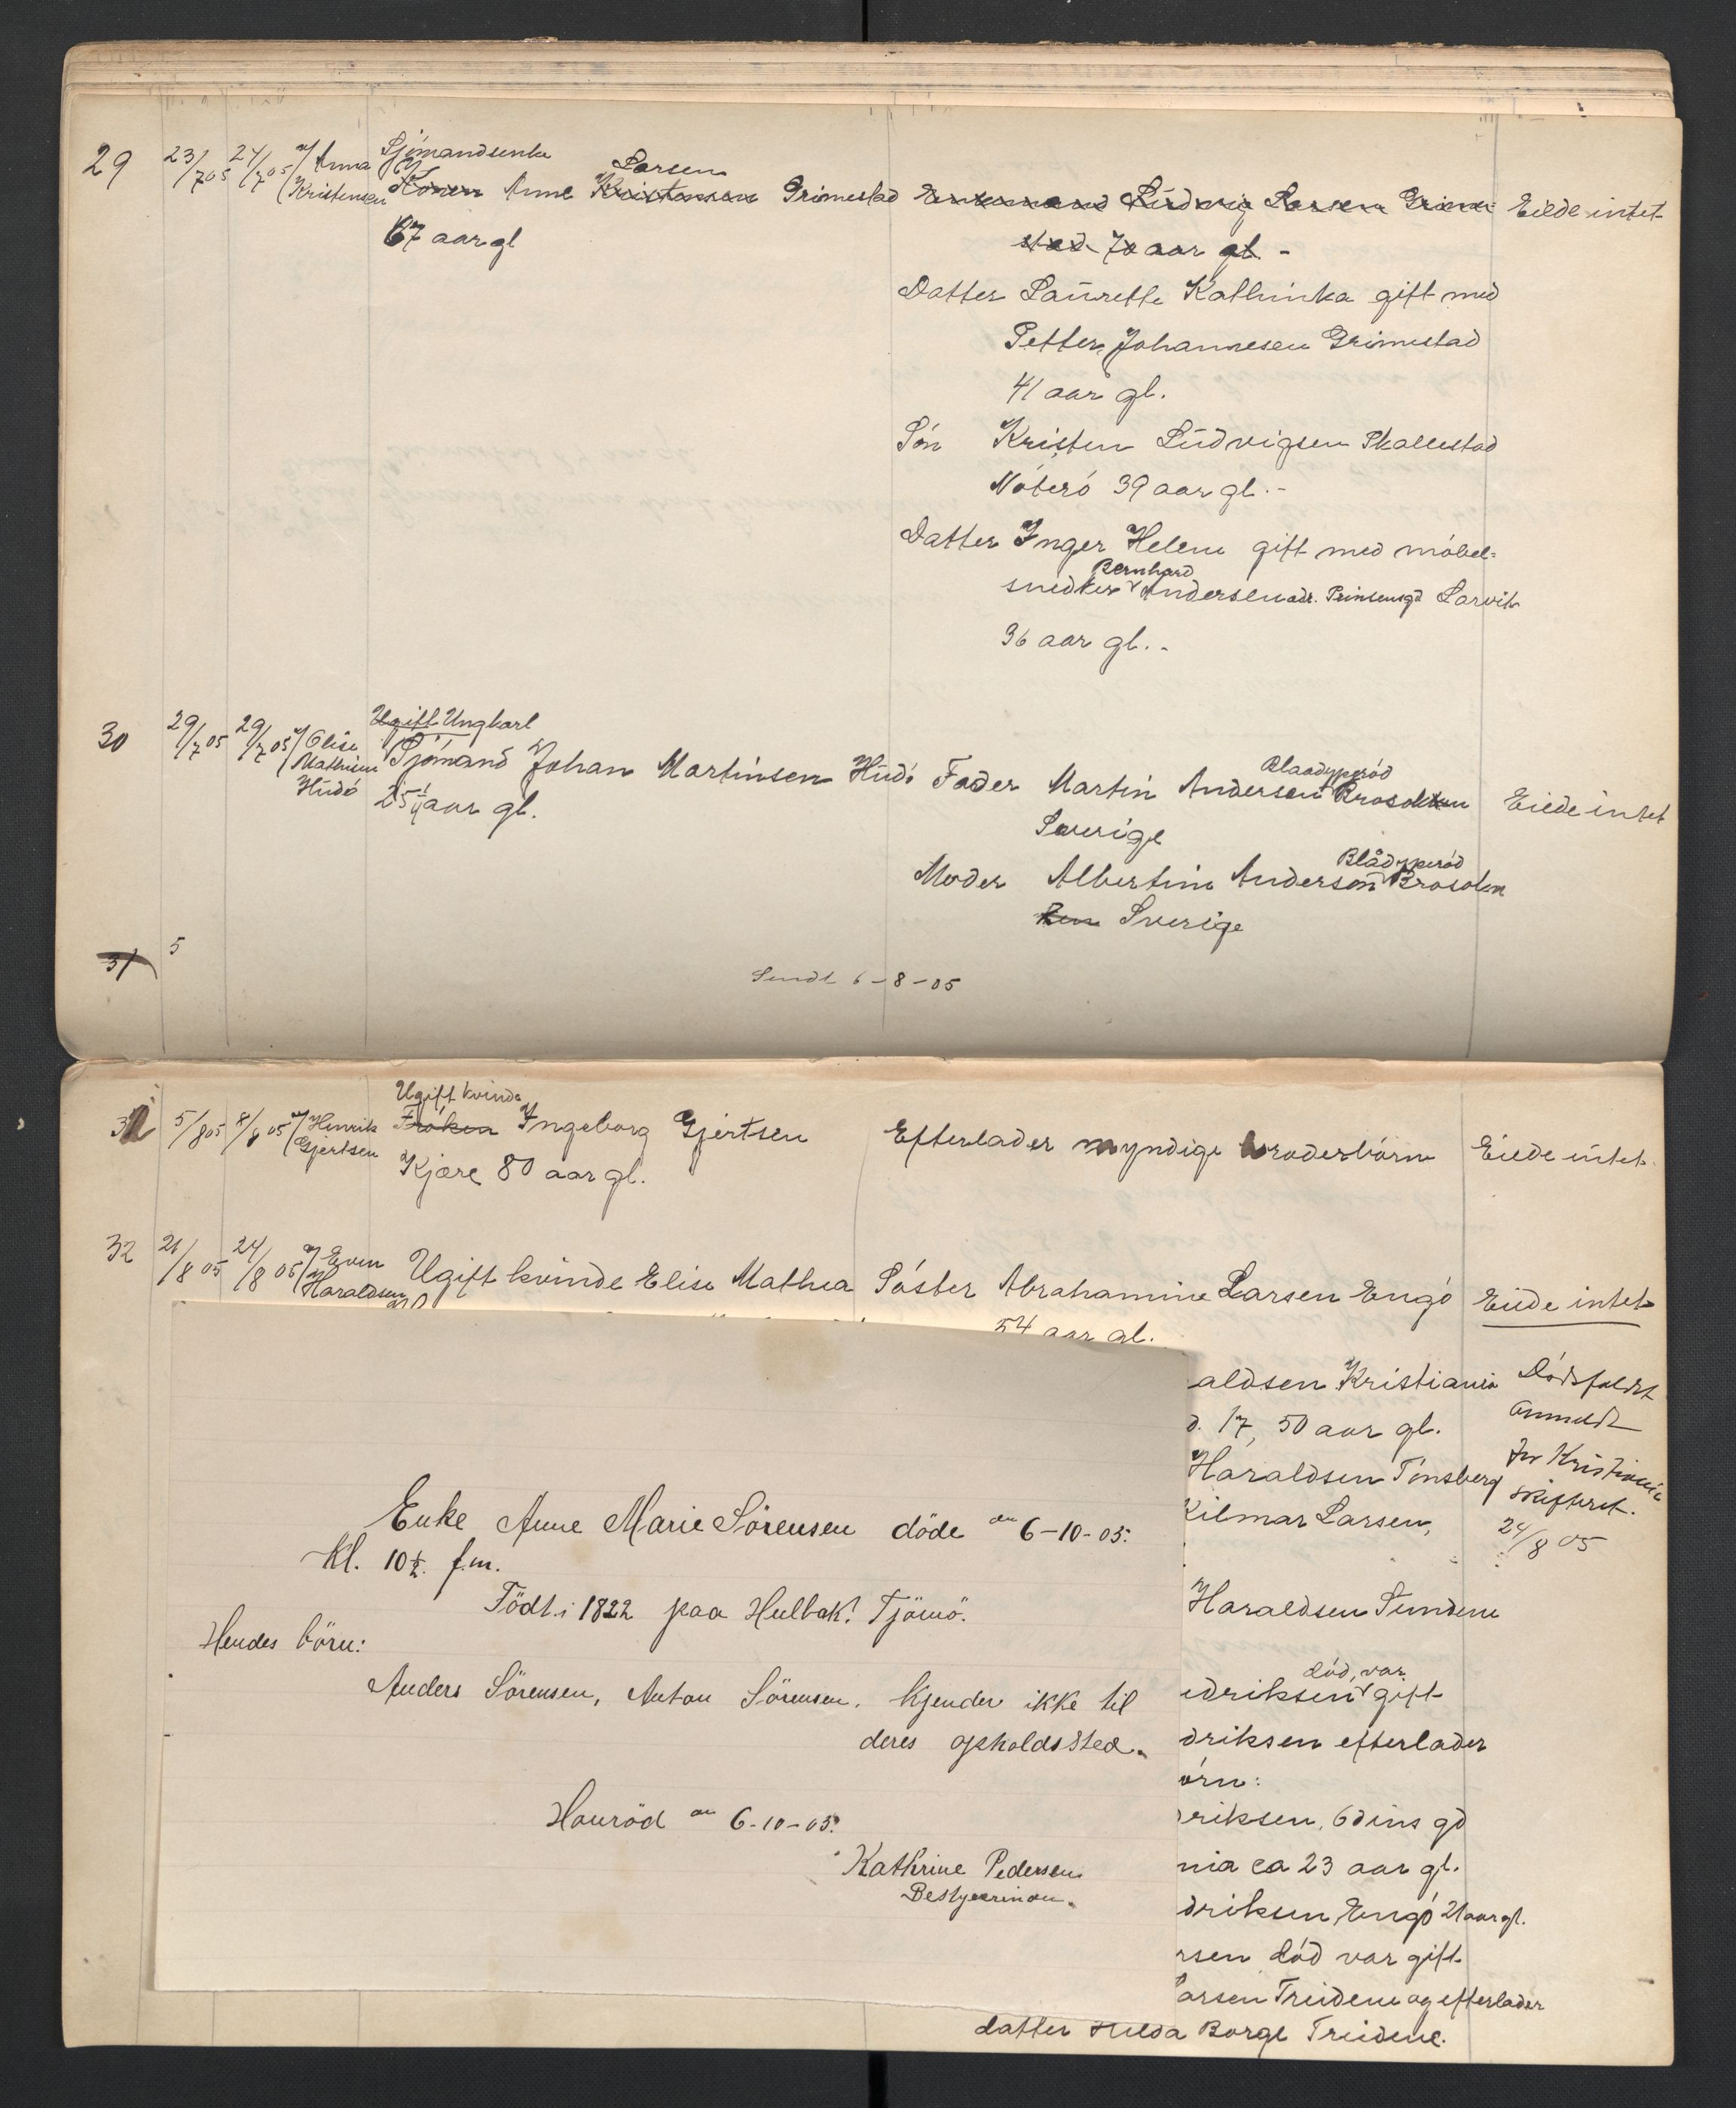 29 23/7 05 24/7 05 af Anna Kristensen
Sjömandsenke
Konen Anne Kristensen Larsen Grimestad
67 aar gl
Enkemand Ludvig Larsen Grime-
stad 70 aar gl. -
Eiede intet
Datter Laurette Kathinka gift med
Petter Johannesen Grimestad
41 aar gl.
Sön Kristen Ludvigsen Skallestad
Nöterö 39 aar gl. -
Datter Inger Helene gift med möbel-
snedker Bernhard Andersen adr. Prinsensgd Larvik
36 aar gl. -
30 29/7 05 29/7 05 af Elise Mathisen Hudö
Ugift Ungkarl
Sjömand Johan Martinsen Hudö
25 aar gl.
Fader Martin Andersen Blaadyperöd Brosokken
Sverige
Eiede intet
Moder Albertine Anderson Blådyperöd Brosokn
Ken Sverige
31 5
Sendt 6-8-05
31 5/8 05 8/8 05 af Henrik Gjertsen
Ugift kvinde
Fröken Ingeborg Gjertsen
Kjære 80 aar gl.
Efterlader myndige broderbörn
Eiede intet.
32 21/8 05 24/8 05 af Even Haraldsen
Ugift kvinde Elise Mathea
Söster Abrahamine Larsen Engö
Eiede intet
54 aar gl.
aldsen Kristiania
d. 17, 50 aar gl.
Haraldsen Tönsberg
Kilmar Larsen,
Dödsfaldet
anmeldt
for Kristiania
skifteret.
24/8 05
Haraldsen Sundene
edriksen död, var gift
driksen efterlader
örn:
riksen, Odins gd
nia ca 23 aar gl.
driksen Engö 21 aar gl.
rsen död var gift
arsen Treidene og efterlader
datter Hilda Borge Treidene.
Enke Anne Marie Sörensen döde den 6-10-05.
Kl. 10½ f.m.
Födt i 1822 paa Hulbak. Tjömö.
Hendes börn:
Anders Sörensen, Anton Sörensen. Kjender ikke til
deres opholdssted.
Hauröd den 6-10-05.
Kathrine Pedersen
Bestyerinden.